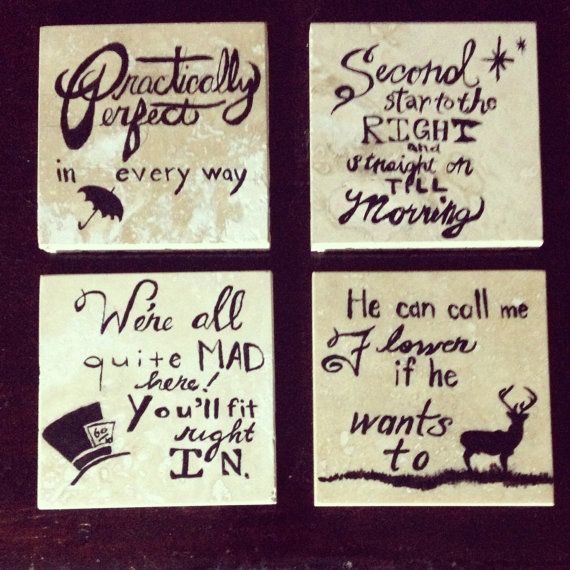 Practically
Perfect
in every way
Second
star to the
RIGHT
and
straight on
TILL
Morning
We're all
quite MAD
here!
You'll fit
right
IN.
He can call me
Flower
if he
wants
to